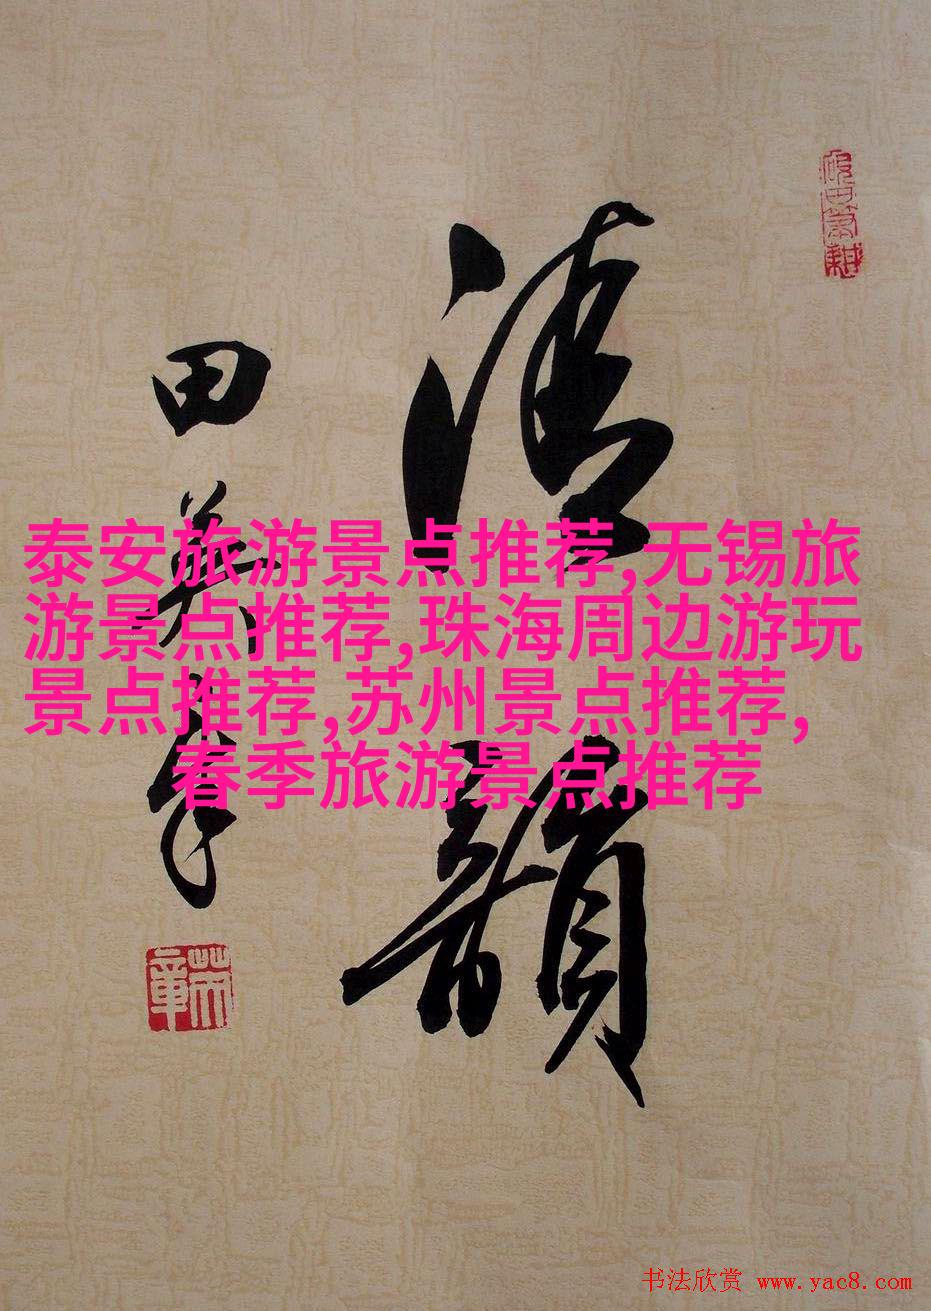 清韻
田英章
泰安旅游景点推荐,无锡旅
游景点推荐,珠海周边游玩
景点推荐,苏州景点推荐,
春季旅游景点推荐
书法欣赏 www.yac8.com